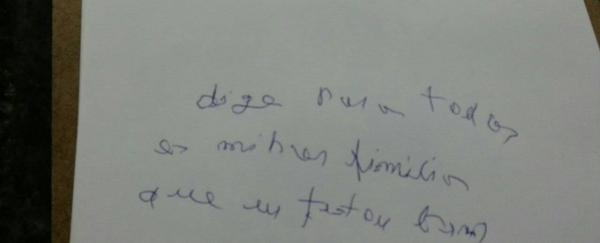 diga para todos
as minhas familia
que eu estou bem